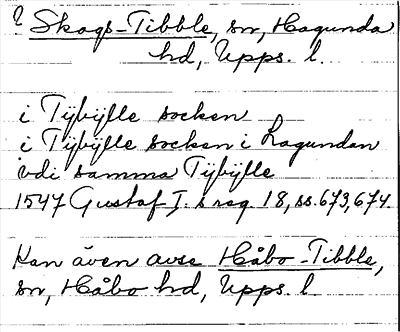 ? Skogs-Tibble, sn, Hagunda
hd, Upps. l.
i Tÿbÿlle socken
i Tÿbÿlle socken i Lagundan
vdi samma Tÿbÿlle
1547 Gustaf I:s reg. 18, ss. 673, 674.
Kan även avse Håbo-Tibble,
sn, Håbo hd, Upps. l.